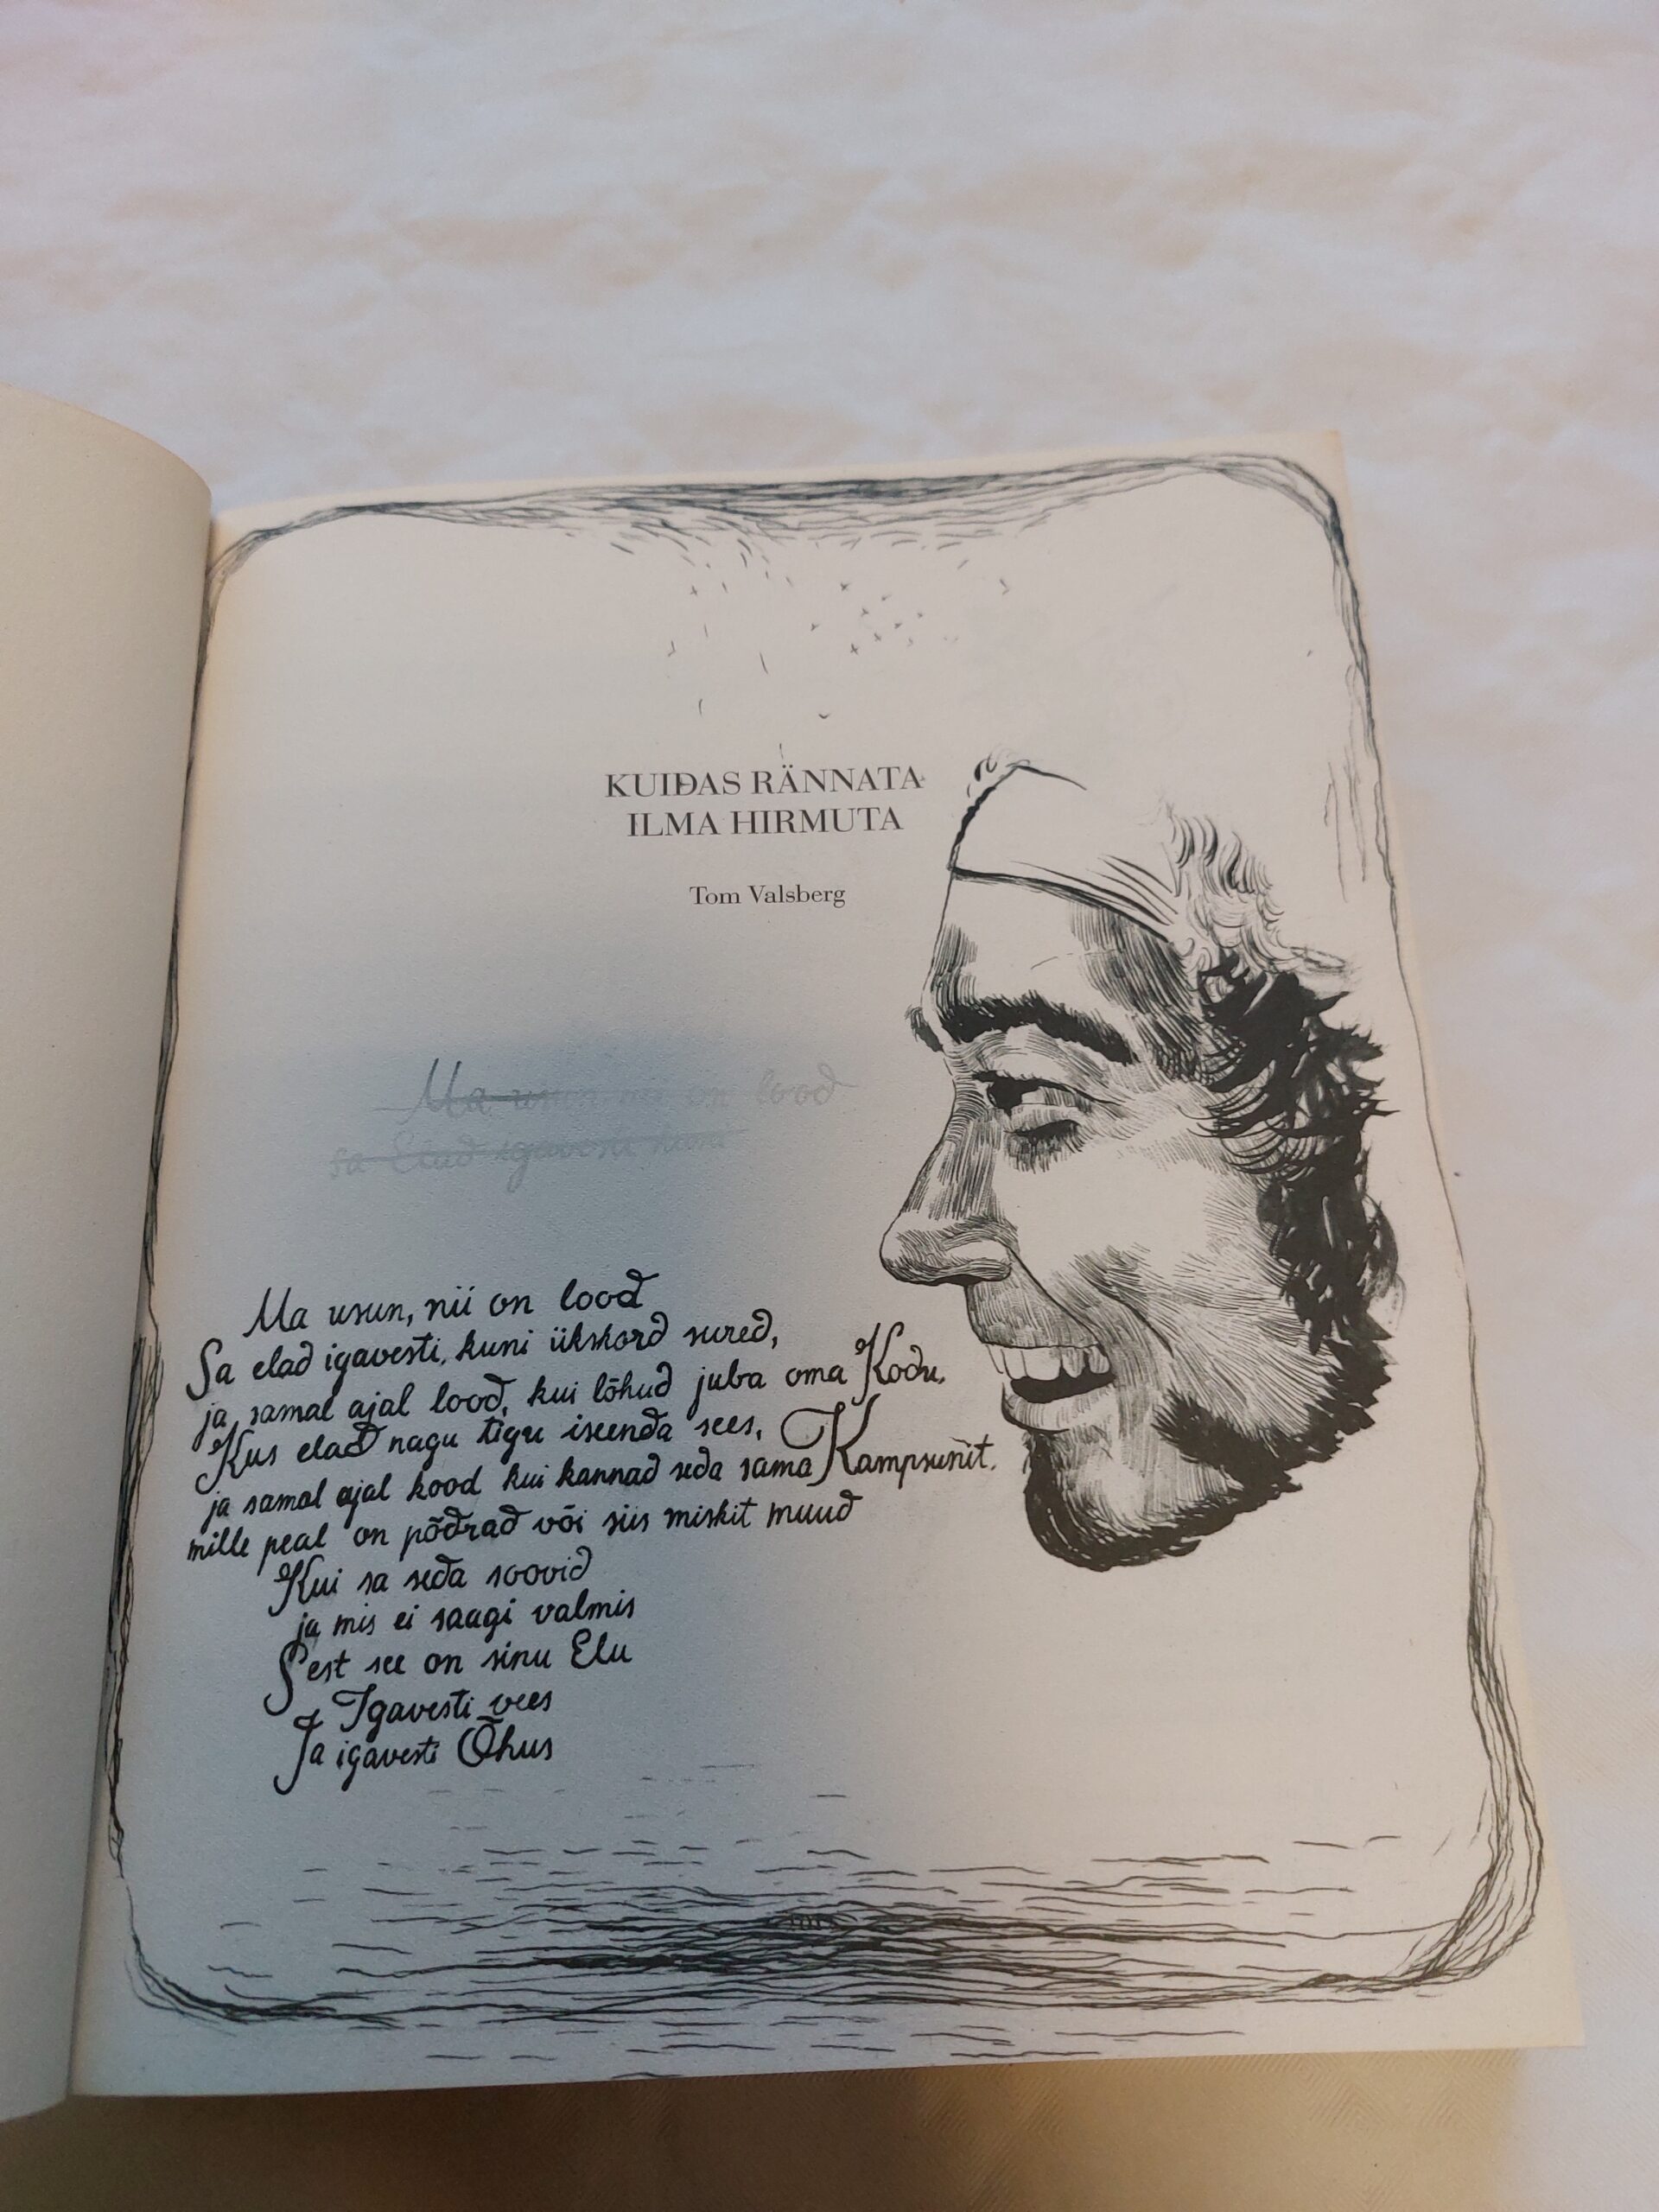 KUIDAS RÄNNATA
ILMA HIRMUTA
Tom Valsberg
Ma usun nii on lood
sa Elad igavesti kuni
Ma usun, nii on lood
Sa elad igavesti, kuni ükskord sured,
ja samal ajal lood, kui lõhud juba oma Kodu,
Kus elad nagu tigu iseenda sees,
ja samal ajal kood kui kannad seda sama Kampsunit,
mille peal on põdrad või siis miskit muud
Kui sa seda soovid
ja mis ei saagi valmis
Sest see on sinu Elu
Igavesti vees
Ja igavesti Õhus